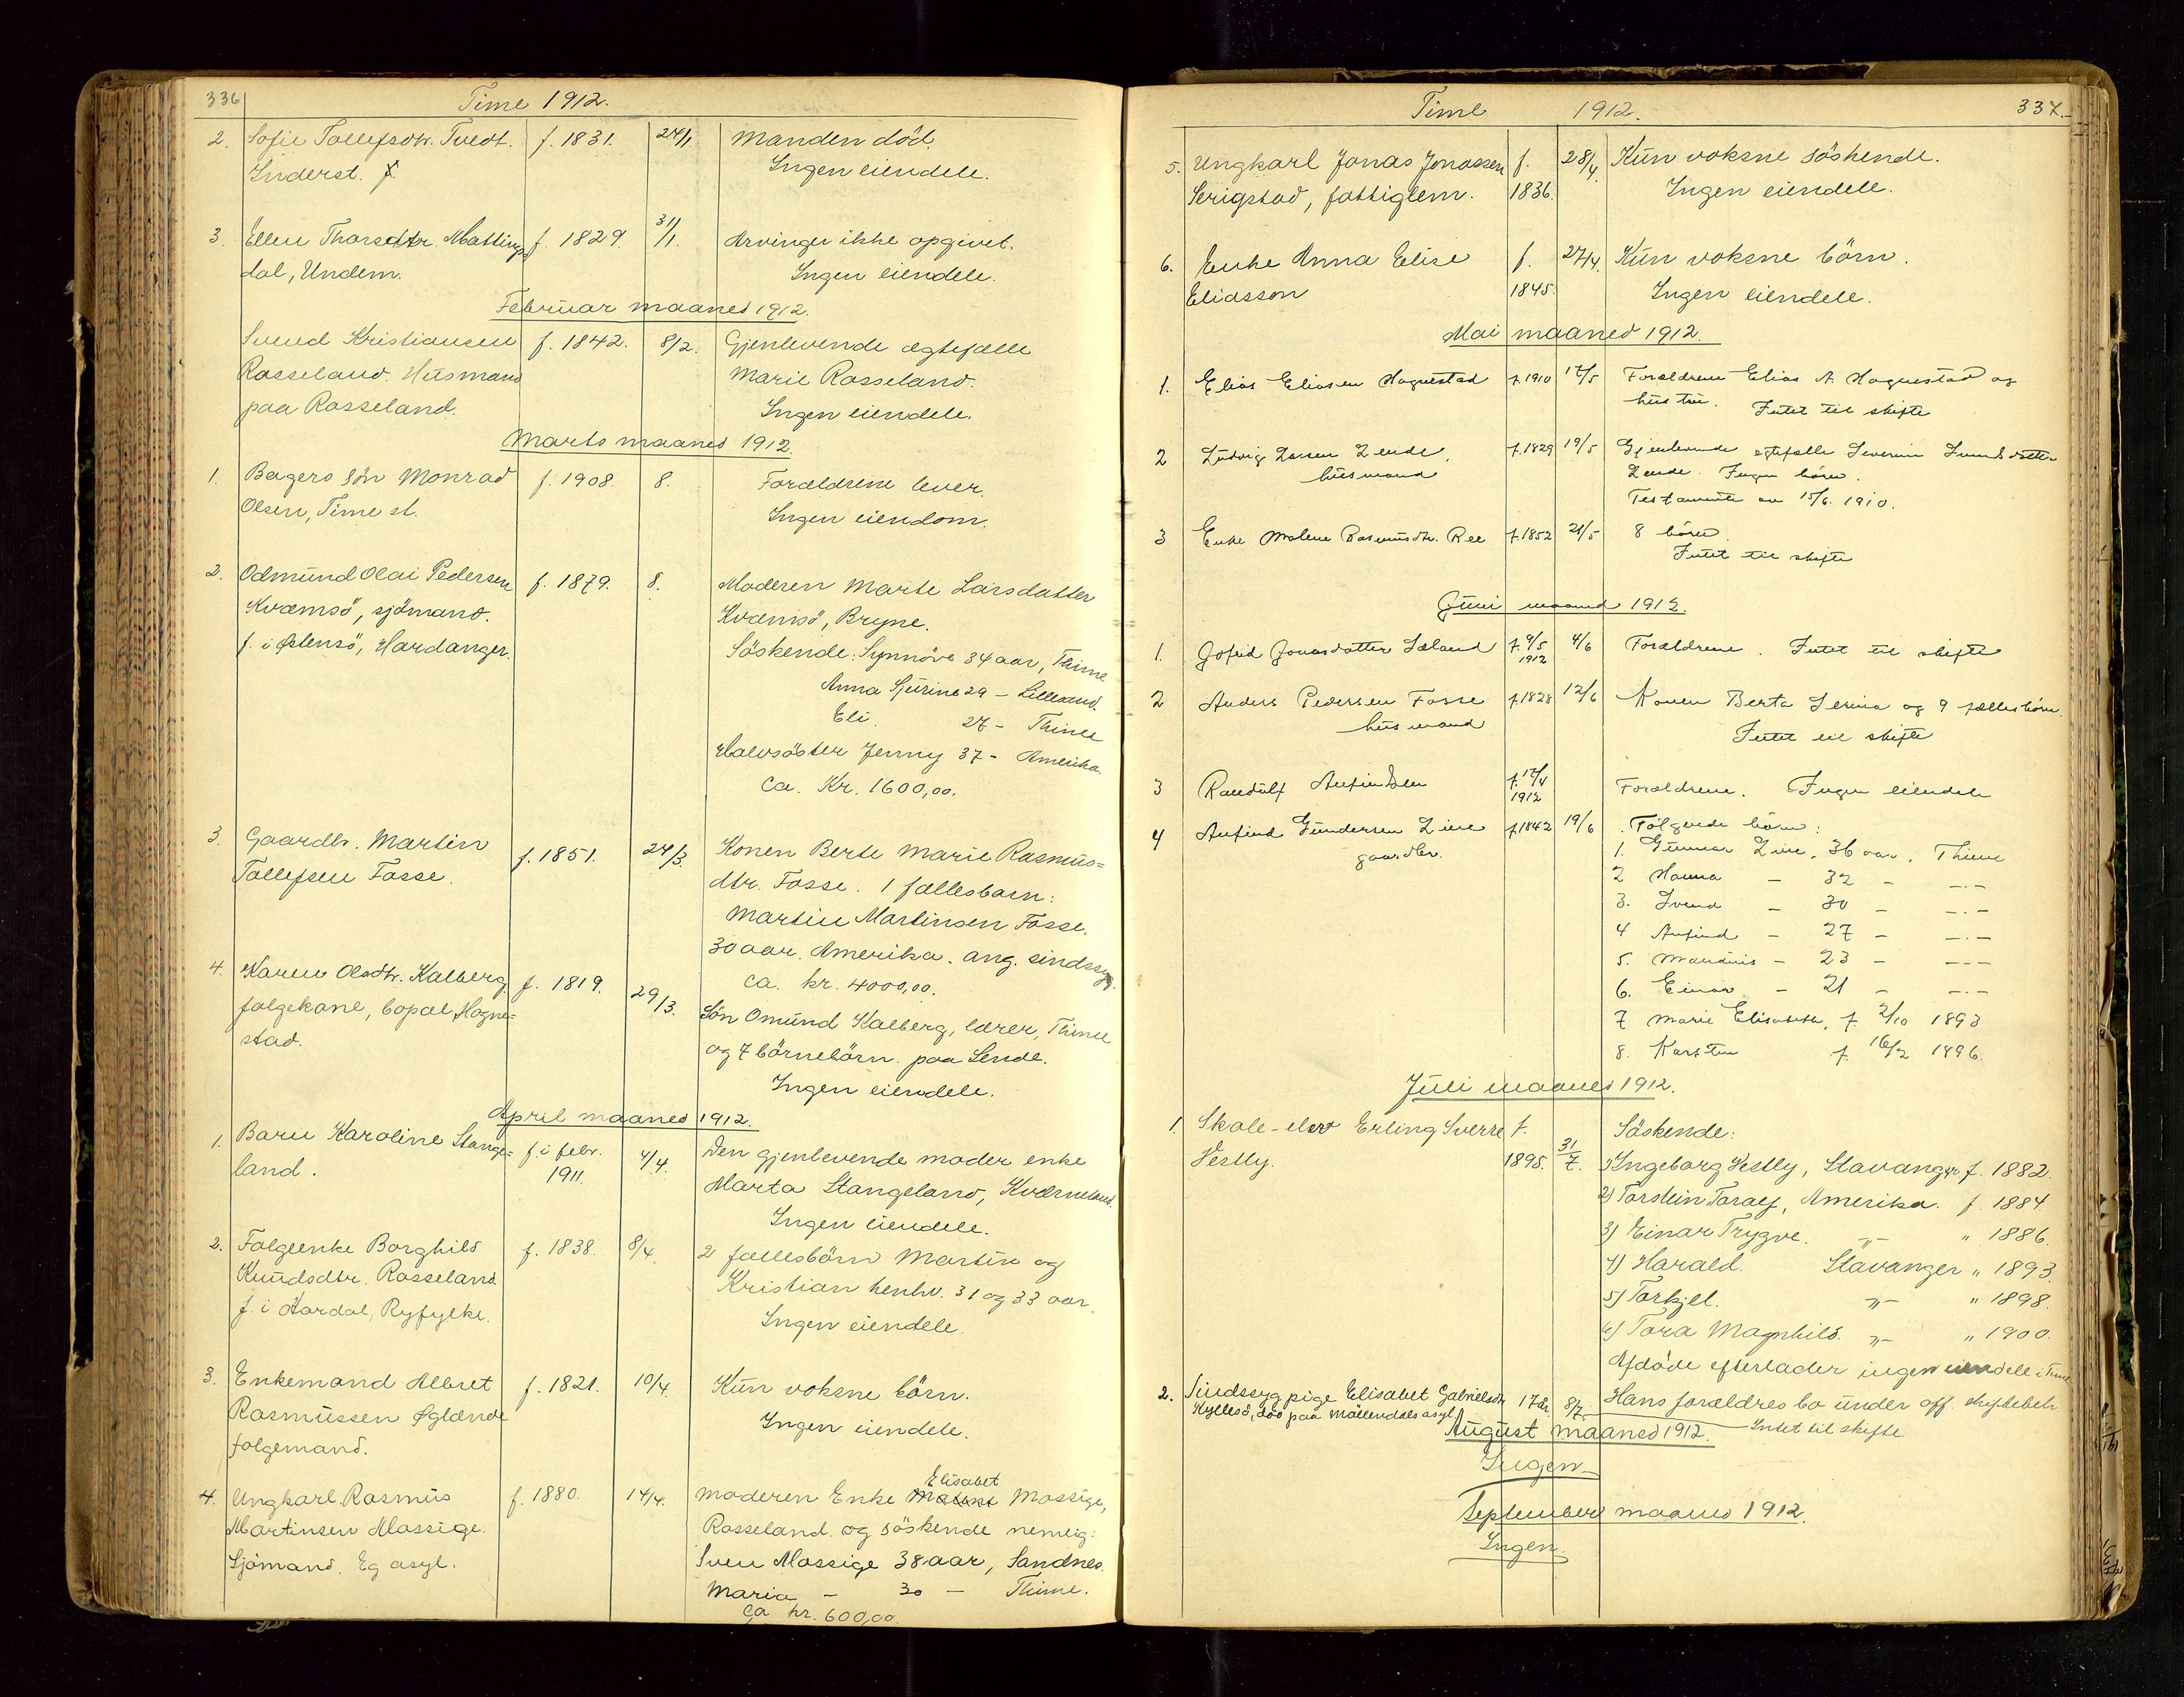 336 Time 1912.
2. Sofie Tollefsdtr. Tvedt. f. 1831. 24/1. Manden död.
Inderst. Ingen eiendele.
3. Ellen Thorsdtr. Mattings= f. 1829. 31/1. Arvinger ikke opgivet.
dal, Undem. Ingen eiendele.
Februar maaned 1912.
Svend Kristiansen f. 1842. 8/2. Gjenlevende ægtefælle
Rosseland. Husmand Marie Rosseland.
paa Rosseland. Ingen eiendele.
Marts maaned 1912.
1. Bagers sön Monrad f. 1908. 8. Forældrene lever.
Olsen, Time st. Ingen eiendom.
2. Odmund Olai Pedersen f. 1879. 8. Moderen Marte Larsdatter
Kvamsö, sjömand. Kvamsö, Bryne.
f. i Østensö, Hardanger. Söskende: Synnöve 34 aar, Thime
Anna Sjurine 29 - Lillesand.
Eli 27 - Thime
Halvsöster Jenny 37 - Amerika.
Ca. Kr. 1600,00.
3. Gaardbr. Martin f. 1851. 24/3. Konen Berte Marie Rasmus=
Tollefsen Fosse. dtr. Fosse. 1 fællesbarn:
Martin Martinsen Fosse.
30 aar. Amerika. ang. sindssyg.
Ca. kr. 4000,00.
4. Karen Olsdtr. Kalberg, f. 1819. 29/3. Sön Omund Kalberg, lærer, Thime
folgekone, bopæl Hogne= og 7 börnebörn paa Lende.
stad. Ingen eiendele.
April maaned 1912.
1. Barn Karoline Stange= f. i febr. 4/4. Den gjenlevende moder enke
land. 1911. Marta Stangeland, Kværneland.
Ingen eiendele.
2. Folgeenke Borghild f. 1838. 8/4. 2 fællesbörn Martin og
Knudsdtr. Rosseland. Kristian henhv. 31 og 33 aar.
f. i Aardal, Ryfylke. Ingen eiendele.
3. Enkemand Albret f. 1821. 10/4. Kun voksne börn.
Rasmussen Øglænde Ingen eiendele.
folgemand.
4. Ungkarl Rasmus f. 1880. 14/4. Moderen Enke Elisabet Mossige,
Martinsen Mossige. Rosseland og söskende nemlig:
Sjömand. Eg asyl. Sven Mossige 38 aar, Sandnes.
Maria - 30 - Thime.
Ca kr. 600,00.
Time 1912. 337.
5. Ungkarl Jonas Jonassen f. 28/4. Kun voksne söskende.
Serigstad, fattiglem. 1836. Ingen eiendele.
6. Enke Anna Elise f. 27/4. Kun voksne börn.
Eliasson 1845. Ingen eiendele.
Mai maaned 1912.
1. Elias Eliasen Hognestad f. 1910 17/5 Forældrene Elias A. Hognestad og
hustru. Intet til skifte
2 Ludvig Larsen Lende, f. 1829 19/5 Gjenlevende egtefælle Severine Svendsdatter
husmand Lende. Ingen börn.
Testamente av 15/6. 1910.
3 Enke Malene Rasmusdtr. Ree f. 1852 21/5 8 börn.
Intet til skifte
Juni maaned 1912.
1. Gofrid Jonasdatter Læland f. 9/5 1912 4/6 Forældrene. Intet til skifte
2 Anders Pedersen Fosse f. 1828 12/6 Konen Berta Serina og 9 fællesbörn.
husmand Intet til skifte
3 Randulf Anfindsen f. 17/4 1912 Forældrene. Ingen eiendele
4 Anfind Gundersen Line f. 1842 19/6 Fölgende börn:
gaardbr. 1. Gunnar Line, 36 aar, Thime
2 Hanna - 32 - -.-
3. Svend - 30 - -.-
4 Anfind - 27 - -.-
5. Maudius - 23 - -.-
6. Einar - 21 - -.-
7 Marie Elisabeth, f. 2/10 1893
8. Karsten f. 16/2 1896.
Juli maaned 1912.
1. Skole-elev Erling Sverre f. 31/7. Söskende:
Vestly. 1895. 1) Ingeborg Vestly, Stavanger f. 1882.
2) Torstein Toralf, Amerika. f. 1884.
3) Einar Trygve. -"- " 1886.
4) Harald. Stavanger " 1893.
5) Torkjel. -"- " 1898.
6) Tora Magnhild. -"- " 1900.
Afdöde efterlader ingen eiendele i Time
Hans forældres bo under off. skiftebeh.
2. Sindssyg pige Elisabet Gabrielsdtr 8/7. Intet til skifte
Kyllesö, död paa Möllendals asyl
August maaned 1912.
Ingen
September maaned 1912.
Ingen.